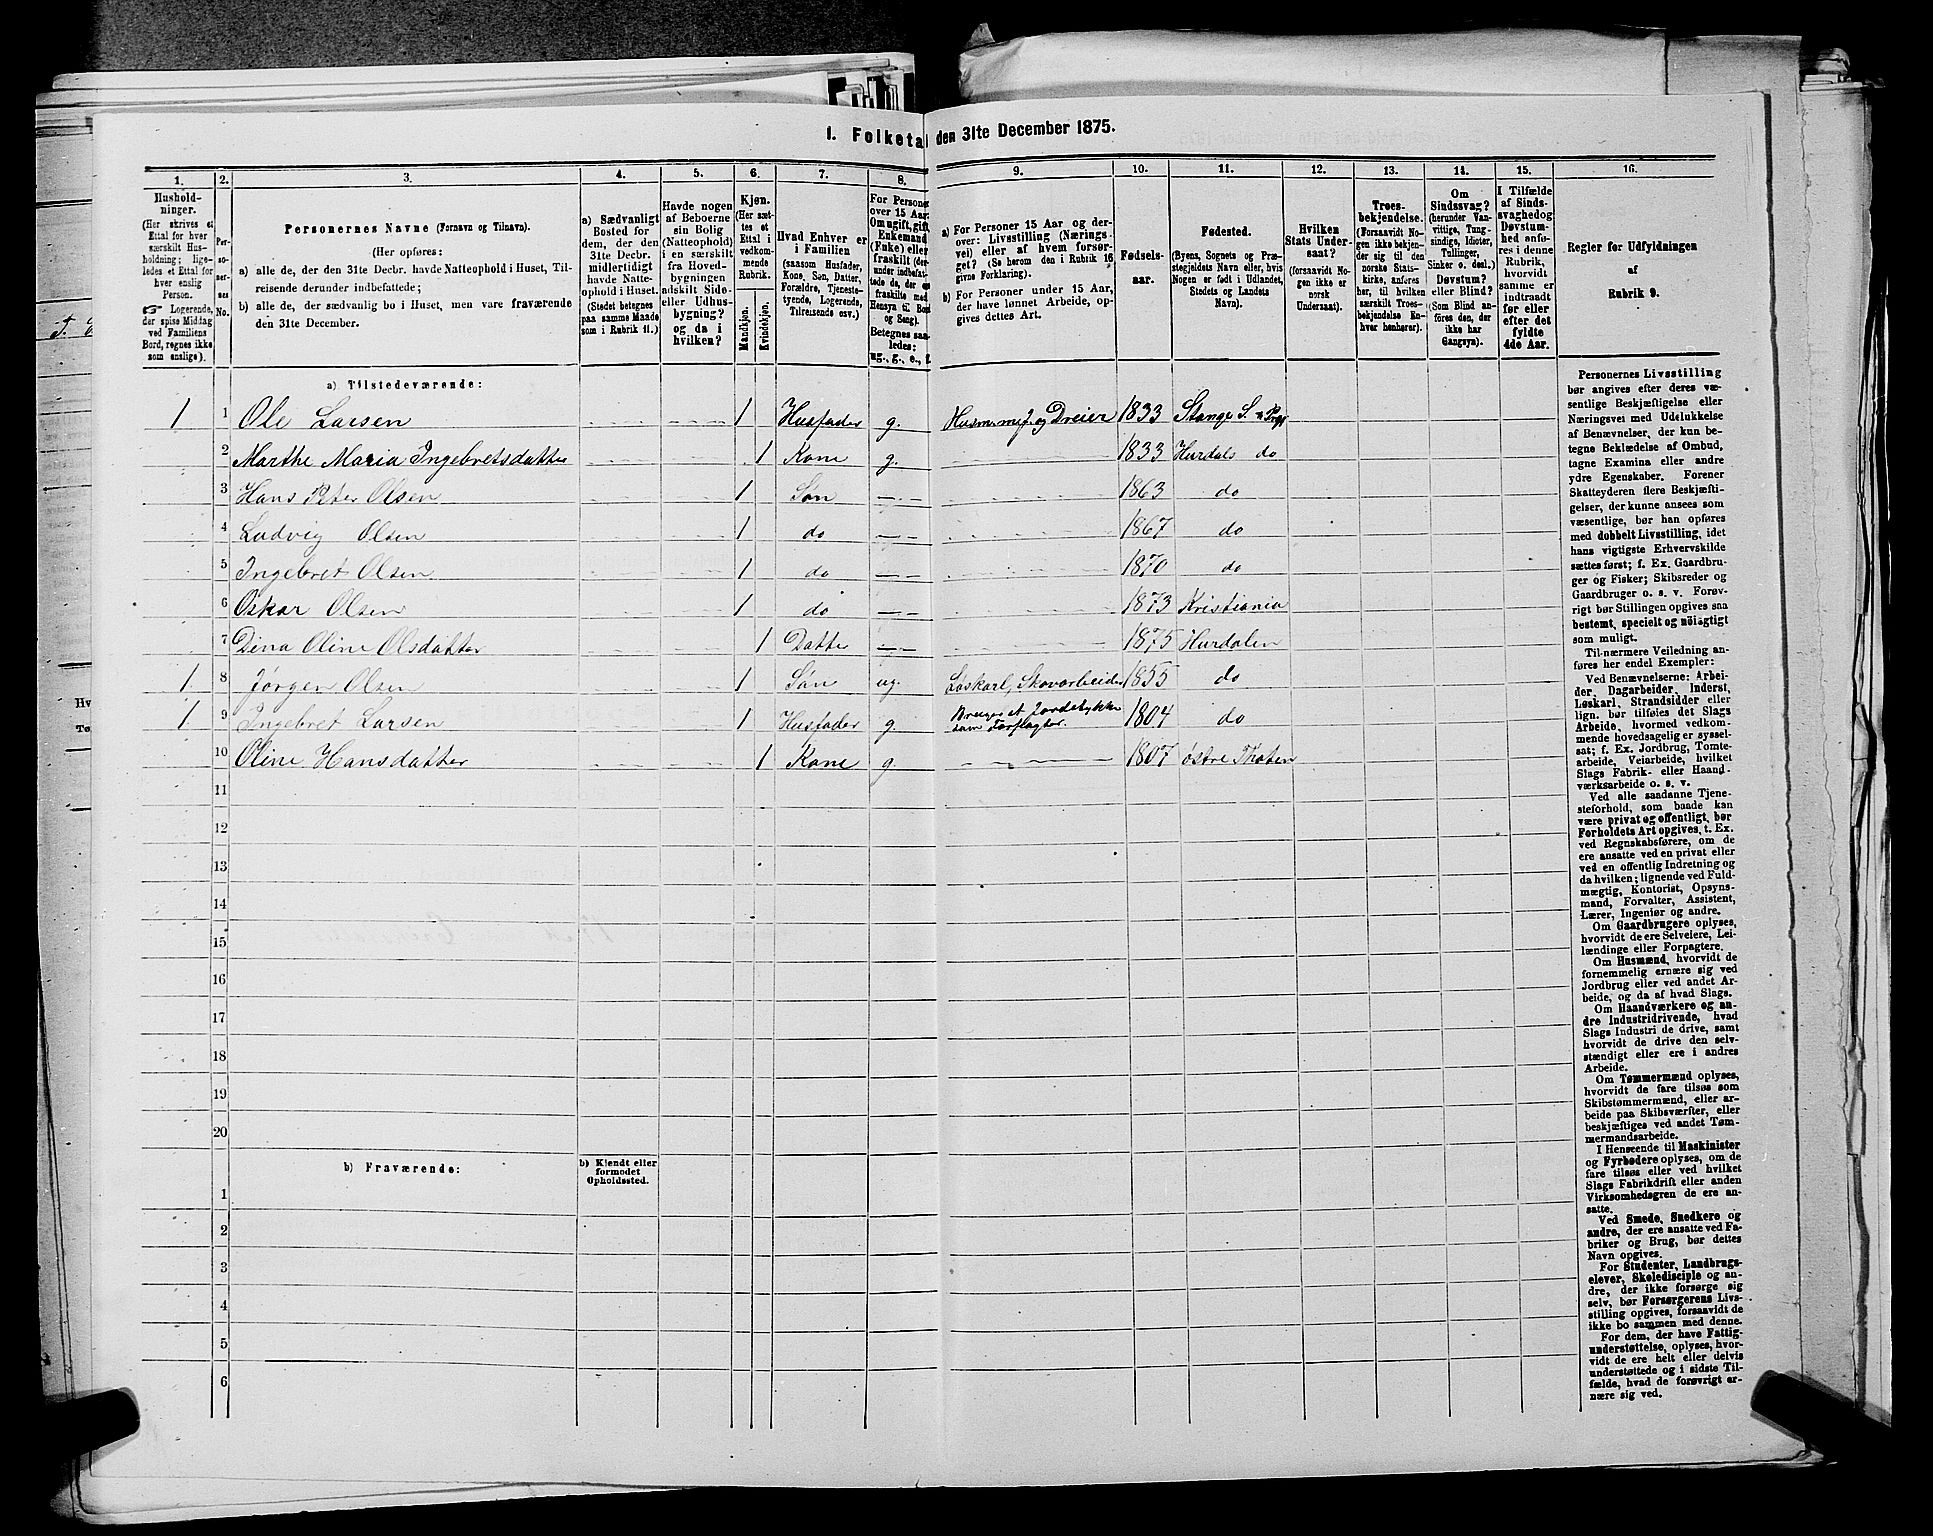 I. Folketal den 31te December 1875.
1. 2. 3. 4. 5. 6. 7. 8. 9. 10. 11. 12. 13. 14. 15. 16.
Husholdninger.
(Her skrives et
Ettal for hver
særskilt Husholdning;
ligeledes et Ettal for
hver enslig
Person.
☞ Logerende,
der spise Middag
ved Familiens
Bord, regnes ikke
som enslige).
Personernes No.
Personernes Navne (Fornavn og Tilnavn).
(Her opføres:
a) alle de, der den 31te Decbr. havde Natteophold i Huset, Tilreisende
derunder indbefattede;
b) alle de, der sædvanlig bo i Huset, men vare fraværende
den 31te December.
a) Sædvanligt
Bosted for
dem, der den
31te Decbr.
midlertidigt
havde Natteophold
i Huset.
(Stedet betegnes
paa samme Maade
som i Rubrik 11.)
Havde nogen
af Beboerne
sin Bolig
(Natteophold)
i en særskilt
fra Hovedbygningen
adskilt Side-
eller Udhusbygning?
og da i
hvilken?
Kjøn.
(Her sættes
et
Ettal i
vedkommende
Rubrik.
Mandkjøn.
Kvindekjøn.
Hvad Enhver er
i Familien
(saasom Husfader,
Kone, Søn, Datter,
Forældre, Tjenestetyende,
Logerende,
Tilreisende osv.)
For Personer
over 15 Aar:
Om ugift, gift,
Enkemand
(Enke) eller
fraskilt
Betegnes saaledes:
ug., g., e., f.
a) For Personer 15 Aar og derover:
Livsstilling (Næringsvei)
eller af hvem forsørget?
(Se herom den i Rubrik 16
givne Forklaring).
b) For Personer under 15 Aar,
der have lønnet Arbeide, opgives
dettes Art.
Fødselsaar.
Fødested.
(Byens, Sognets og Præstegjeldets
Navn eller, hvis
Nogen er født i Udlandet,
Stedets og Landets
Navn).
Hvilken
Stats Undersaat?
(forsaavidt Nogen
ikke er
norsk
Undersaat).
Troesbekjendelse.
(Forsaavidt Nogen
ikke bekjender
sig til den
norske Statskirke,
anføres
her, til hvilken
særskilt Troesbekjendelse
Enhver
henhører).
Om
Sindssvag?
(herunder Vanvittige,
Tungsindige,
Idioter,
Tullinger,
Sinker o. desl.)
Døvstum?
eller Blind?
(Som Blind anføres
den, der
ikke har
Gangsyn).
I Tilfælde
af Sindssvaghed
og
Døvstumhed
anføres
i denne
Rubrik,
hvorvidt
samme er
indtraadt
før eller
efter det
fyldte
4de Aar.
Regler for Udfyldningen
af
Rubrik 9.
a) Tilstedeværende:
1 1 Ole Larsen 1 Husfader g. Husm. m. j. og Dreier 1833 Stange S. &
2 Marthe Maria Ingebretsdatter 1 Kone g. 1833 Hurdals do
3 Hans Peter Olsen 1 Søn 1863 do
4 Ludvig Olsen 1 do 1867 do
5 Ingebret Olsen 1 do 1870 do
6 Oskar Olsen 1 do 1873 Kristiania
7 Dina Oline Olsdatter 1 Datter 1875 Hurdalen
1 8 Jørgen Olsen 1 Søn ug. Løskarl, Skovarbeider 1855 do
1 9 Ingebret Larsen 1 Husfader g. Bruger et Jordstykke som Forpagter. 1804 do
10 Oline Hansdatter 1 Kone g. 1807 østre Thoten
11
12
13
14
15
16
17
18
19
20
b) Fraværende:
b) Kjendt eller
formodet
Opholdssted.
1
2
3
4
5
6
Personernes Livsstilling
bør angives efter deres væsentlige
Beskjæftigelse eller
Næringsvei med Udelukkelse
af Benævnelser, der kun betegne
Beklædelse af Ombud,
tagne Examina eller andre
ydre Egenskaber. Forener
Skatteyderen flere Beskjæftigelser,
der kunne ansees som
væsentlige, bør han opføres
med dobbelt Livsstilling, idet
hans vigtigste Erhvervskilde
sættes først; f. Ex. Gaardbruger
og Fisker; Skibsreder og
Gaardbruger o. s. v. Forøvrigt
bør Stillingen opgives saa
bestemt, specielt og nøiagtigt
som muligt.
Til nærmere Veiledning anføres
her endel Exempler:
Ved Benævnelserne: Arbeider,
Dagarbeider, Inderst,
Løskarl, Strandsidder eller
lign. bør tilføies det Slags
Arbeide, hvormed vedkommende
hovedsagelig er sysselsat;
f. Ex. Jordbrug, Tomtearbeide,
Veiarbeide, hvilket
Slags Fabrik- eller Haandværksarbeide
o. s. v.
Ved alle saadanne Tjenesteforhold,
som baade kan
være privat og offentligt, bør
Forholdets Art opgives, t. Ex.
ved Regnskabsførere, om de
ere ansatte ved en privat eller
ved en offentlig Indretning og
da hvilken; lignende ved Fuldmægtig,
Kontorist, Opsynsmand,
Forvalter, Assistent,
Lærer, Ingeniør og andre.
Om Gaardbrugere oplyses,
hvorvidt de ere Selveiere, Leilændinge
eller Forpagtere.
Om Husmænd, hvorvidt de
fornemmelig ernære sig ved
Jordbrug eller ved andet Arbeide,
og da af hvad Slags.
Om Haandværkere og andre
Industridrivende, hvad
Slags Industri de drive, samt
hvorvidt de drive den selvstændigt
eller ere i andres
Arbeide.
Om Tømmermænd oplyses,
hvorvidt de fare tilsøs som
Skibstømmermænd, eller arbeide
paa Skibsværfter, eller
beskjæftiges ved andet Tømmermandsarbeide.
I Henseende til Maskinister
og Fyrbødere oplyses, om de
fare tilsøs eller ved hvilket
Slags Fabrikdrift eller anden
Virksomhedsgren de ere ansatte.
Ved Smede, Snedkere og
andre, der ere ansatte ved Fabriker
og Brug, bør dettes
Navn opgives.
For Studenter, Landbrugselever,
Skoledisciple og andre,
der ikke forsørge sig
selv, bør Forsørgerens Livsstilling
opgives, forsaavidt de
ikke bo sammen med denne.
For dem, der have Fattigunderstøttelse,
oplyses, hvorvidt
de ere helt eller delvis
understøttede og i sidste Tilfælde,
hvad de forøvrigt ernære
sig ved.